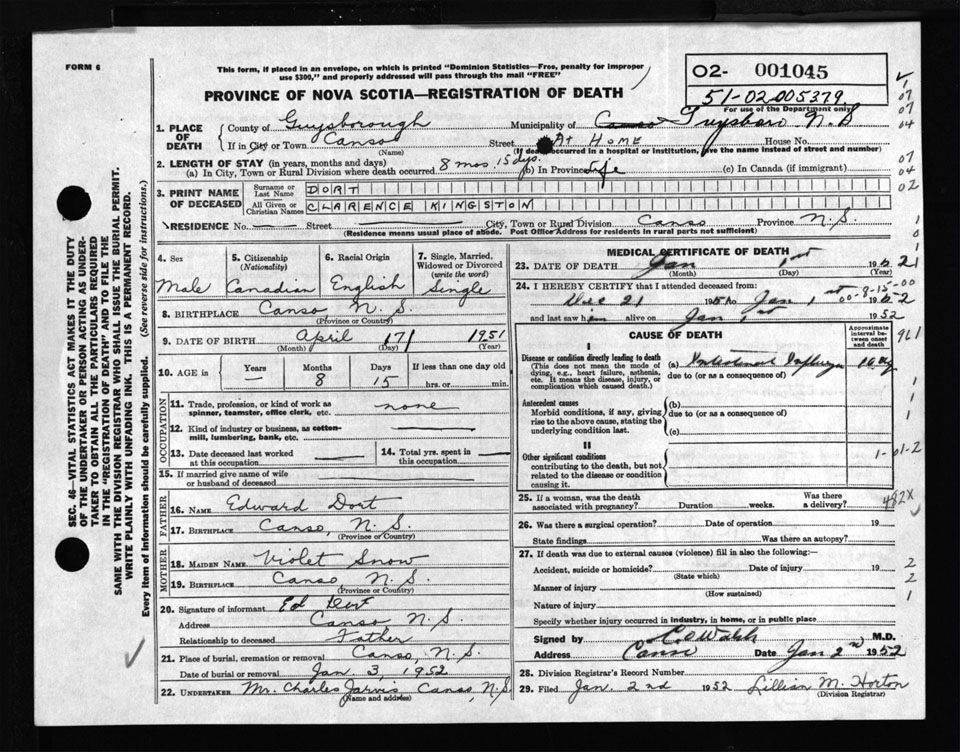 FORM 6
This form, if placed in an envelope, on which is printed "Dominion Statistics—Free, penalty for improper
use $300," and properly addressed will pass through the mail "FREE"
PROVINCE OF NOVA SCOTIA—REGISTRATION OF DEATH
O2- 001045
51-02 005379
For use of the Department only
1. PLACE OF DEATH
County of Guysborough Municipality of Canso N.S
If in City or Town Canso (Name) Street At Home House No.
(If death occurred in a hospital or institution, give the name instead of street and number)
2. LENGTH OF STAY (in years, months and days)
(a) In City, Town or Rural Division where death occurred 8 mos. 15 dys. (b) In Province Life (c) In Canada (if immigrant)
3. PRINT NAME OF DECEASED
Surname or Last Name DORT
All Given or Christian Names CLARENCE KINGSTON
RESIDENCE No. — Street — City, Town or Rural Division Canso Province N.S.
(Residence means usual place of abode. Post Office Address for residents in rural parts not sufficient)
4. Sex Male
5. Citizenship (Nationality) Canadian
6. Racial Origin English
7. Single, Married, Widowed or Divorced (write the word) Single
8. BIRTHPLACE Canso N.S.
(Province or Country)
9. DATE OF BIRTH April 17 1951
(Month) (Day) (Year)
10. AGE in Years — Months 8 Days 15 If less than one day old hrs. or min.
OCCUPATION
11. Trade, profession, or kind of work as spinner, teamster, office clerk, etc. none
12. Kind of industry or business, as cotton-mill, lumbering, bank, etc. —
13. Date deceased last worked at this occupation —
14. Total yrs. spent in this occupation —
15. If married give name of wife or husband of deceased —
FATHER
16. Name Edward Dort
17. Birthplace Canso, N.S.
(Province or Country)
MOTHER
18. Maiden Name Violet Snow
19. Birthplace Canso N.S.
(Province or Country)
20. Signature of informant Ed Dort
Address Canso N.S.
Relationship to deceased Father
21. Place of burial, cremation or removal Canso, N.S.
Date of burial or removal Jan. 3, 1952
22. UNDERTAKER Mr. Charles Jarvis, Canso, N.S.
(Name and address)
MEDICAL CERTIFICATE OF DEATH
23. DATE OF DEATH Jan 1st 1952
(Month) (Day) (Year)
24. I HEREBY CERTIFY that I attended deceased from:
Dec 21 1951 to Jan 1st 1952
and last saw him alive on Jan 1st 1952
CAUSE OF DEATH
Approximate interval between onset and death
I
Disease or condition directly leading to death
(This does not mean the mode of dying, e.g., heart failure, asthenia, etc. It means the disease, injury, or complication which caused death.)
(a)
due to (or as a consequence of)
Antecedent causes
Morbid conditions, if any, giving rise to the above cause, stating the underlying condition last.
(b)
due to (or as a consequence of)
(c)
II
Other significant conditions
contributing to the death, but not related to the disease or condition causing it.
25. If a woman, was the death associated with pregnancy? Duration weeks. Was there a delivery?
26. Was there a surgical operation? Date of operation 19
State findings Was there an autopsy?
27. If death was due to external causes (violence) fill in also the following:—
Accident, suicide or homicide? Date of injury 19
(State which)
Manner of injury
(How sustained)
Nature of injury
Specify whether injury occurred in industry, in home, or in public place
Signed by C.O Walsh M.D.
Address Canso Date Jan 2nd 1952
28. Division Registrar's Record Number
29. Filed Jan. 2nd 1952 Lillian M. Horton
(Division Registrar)
SEC. 46—VITAL STATISTICS ACT MAKES IT THE DUTY
OF THE UNDERTAKER OR PERSON ACTING AS UNDER-
TAKER TO OBTAIN ALL THE PARTICULARS REQUIRED
IN THE "REGISTRATION OF DEATH" AND TO FILE THE
SAME WITH THE DIVISION REGISTRAR WHO SHALL ISSUE THE BURIAL PERMIT.
WRITE PLAINLY WITH UNFADING INK. THIS IS A PERMANENT RECORD.
Every item of information should be carefully supplied. (See reverse side for instructions.)